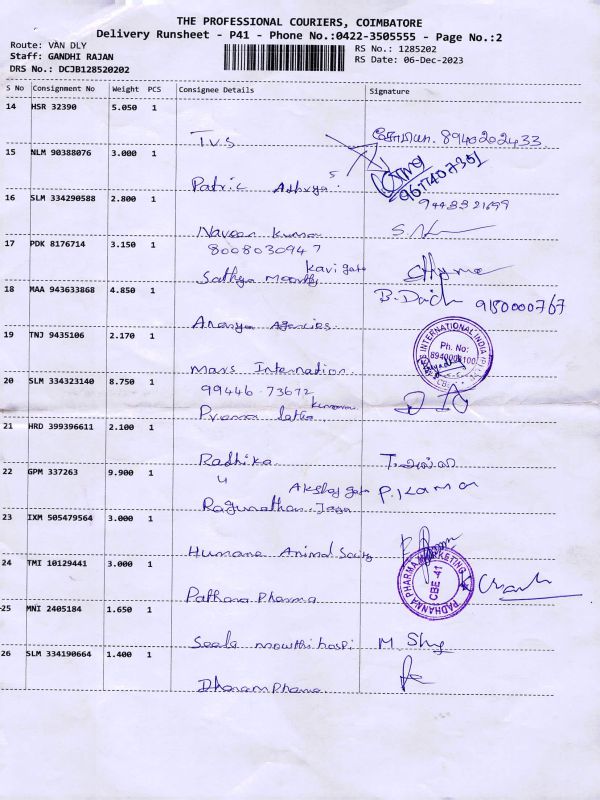 THE PROFESSIONAL COURIERS, COIMBATORE
Delivery Runsheet - P41 - Phone No.:0422-3505555 - Page No.:2
Route: VAN DLY
Staff: GANDHI RAJAN
DRS No.: DCJB128520202
RS No.: 1285202
RS Date: 06-Dec-2023
S No Consignment No Weight PCS Consignee Details Signature
14 HSR 32390 5.050 1
T.V.S 8940202433
15 NLM 90388076 3.000 1
Patric Adhya 9617407351
16 SLM 334290588 2.800 1
Naveen Kumar
8008030947
17 PDK 8176714 3.150 1
Sathya Moorthy Kavi gate
18 MAA 943633868 4.850 1
B. 9150000767
Ananya Agencies
19 TNJ 9435106 2.170 1
Mars Internation
INTERNATIONAL INDIA
Ph. No:
20 SLM 334323140 8.750 1
99446-73672
Prema latha
21 HRD 399396611 2.100 1
Radhika
22 GPM 337263 9.900 1
Akshaj gate
Ragunathan Jaya
23 IXM 505479564 3.000 1
Humane Animal Society
24 TMI 10129441 3.000 1
Pathana Pharma
PADHANNA PHARMA MARKETING
CBE - 41
25 MNI 2405184 1.650 1
Seela mowthi hospi M. Shy
26 SLM 334190664 1.400 1
Dharam Phama